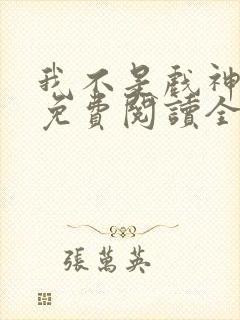 我不是戲神
免費閱讀全
張萬英